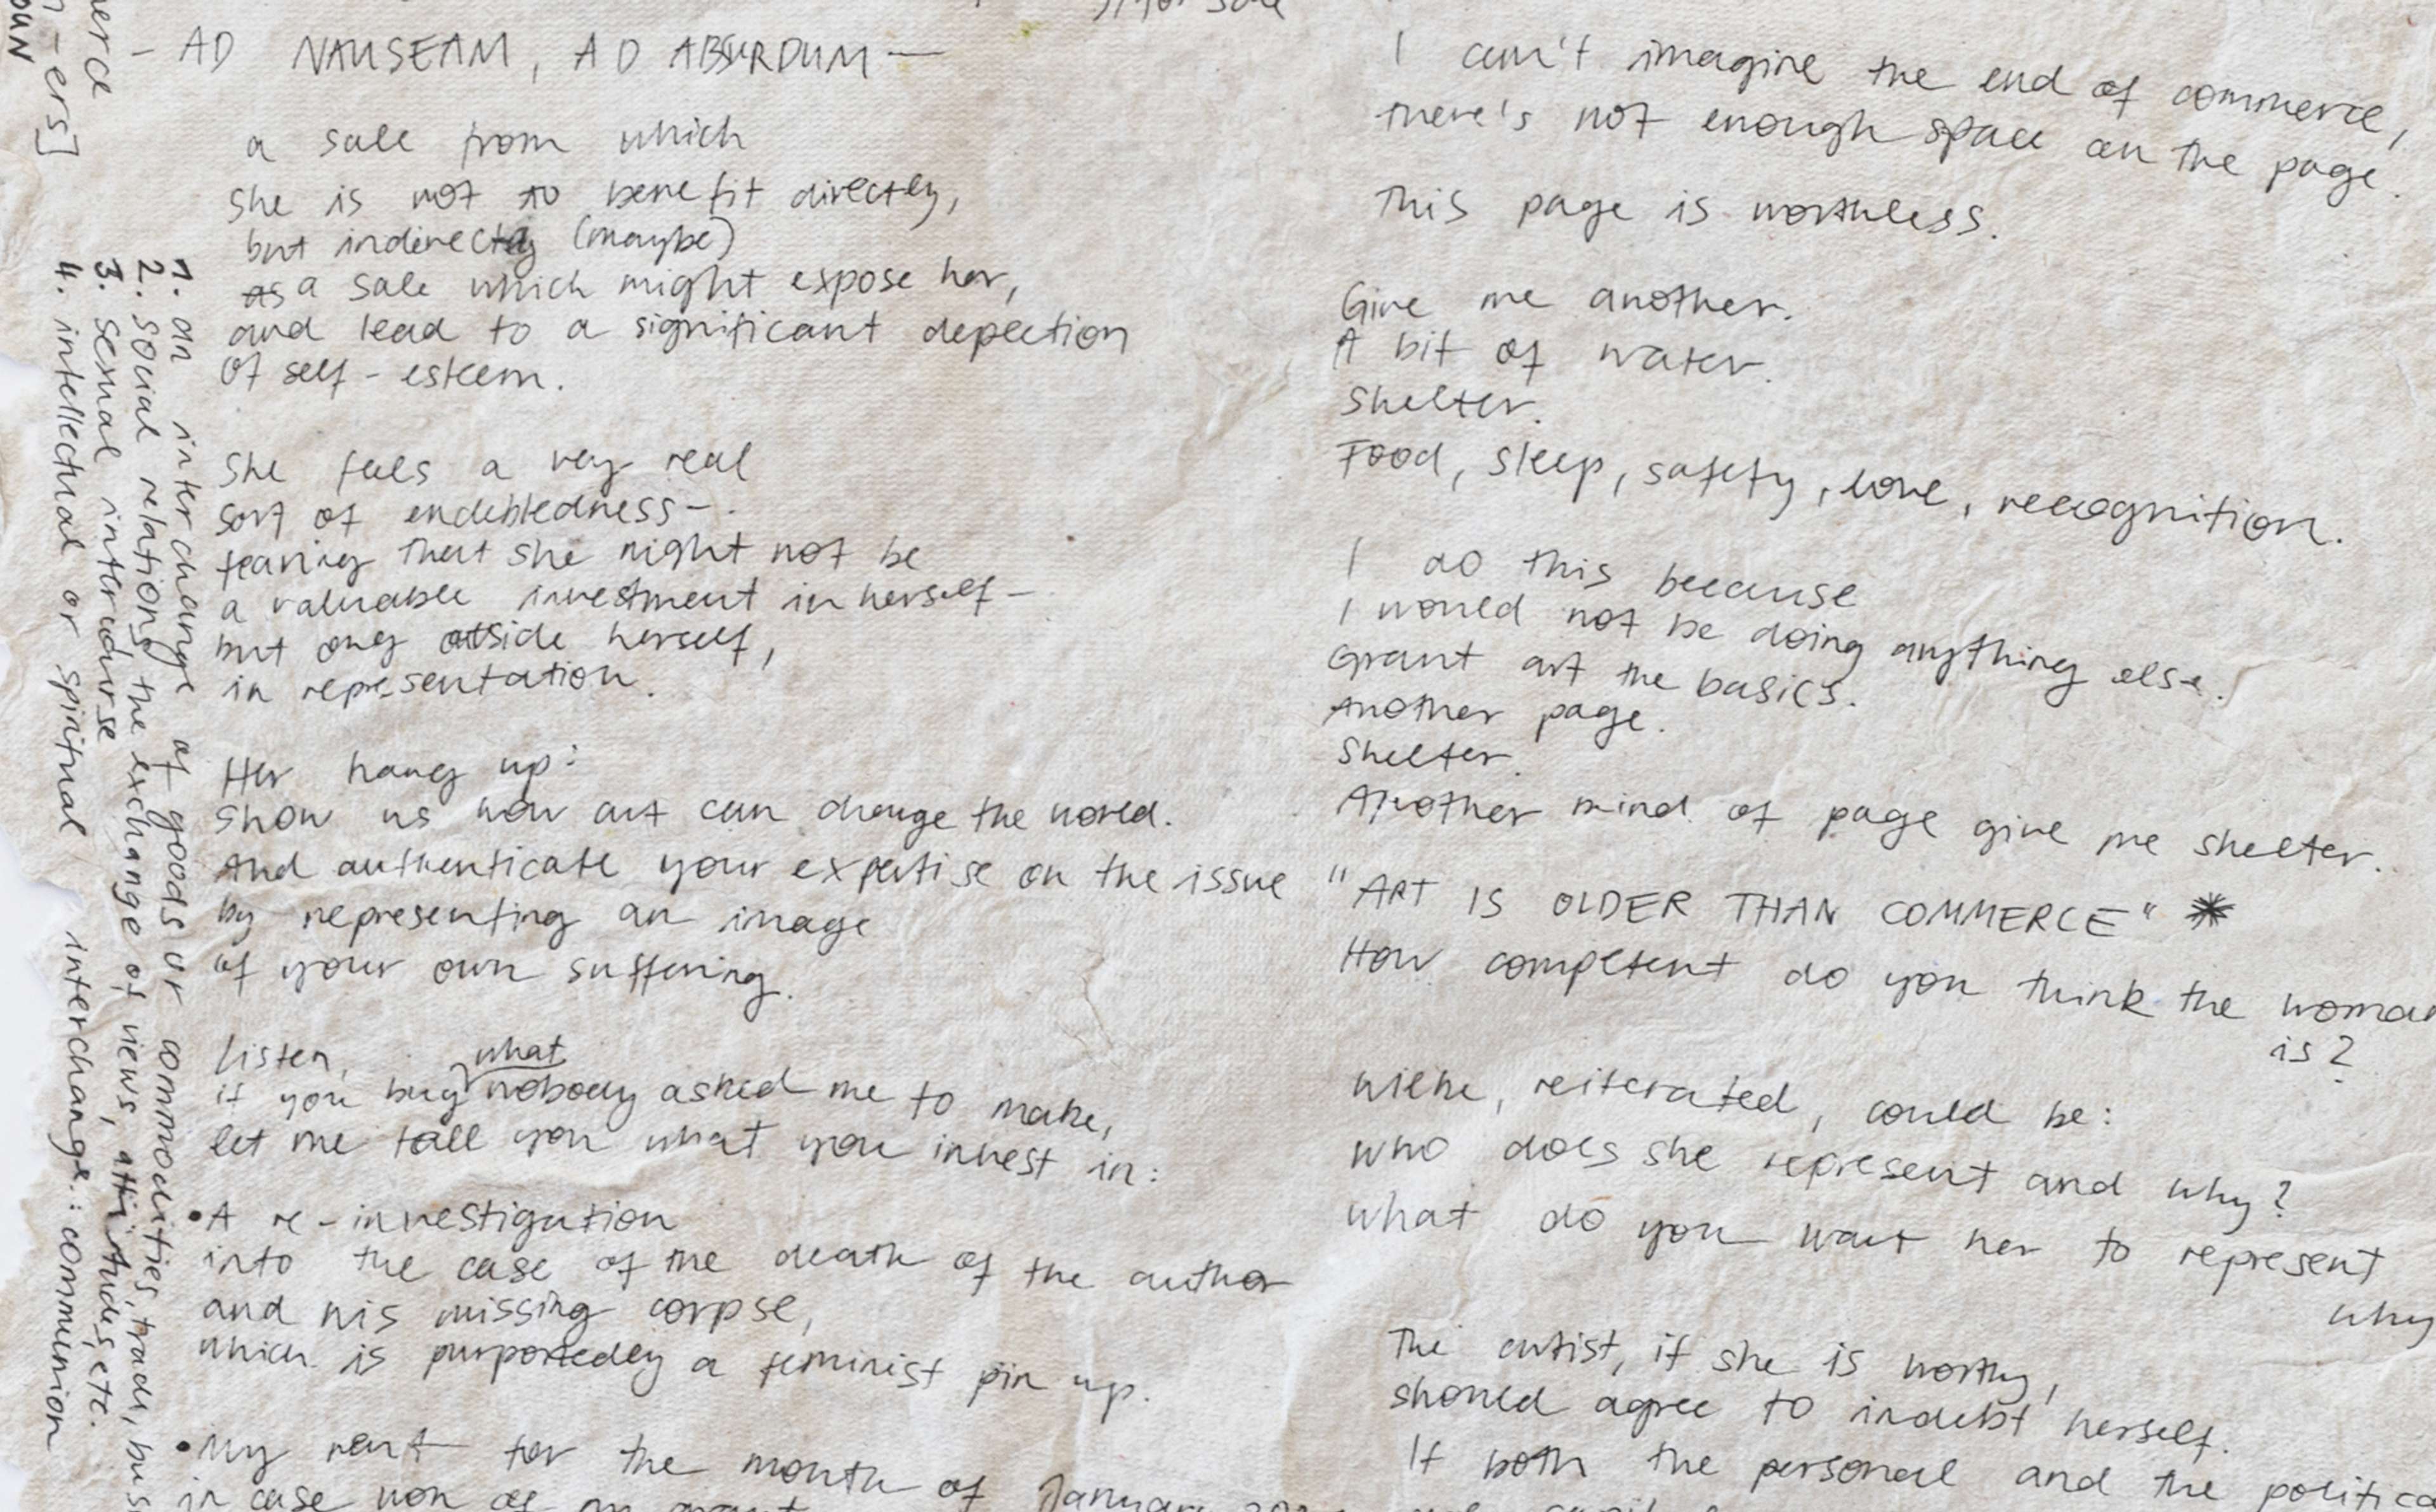 erce
- ers]
OUN
1. an interchange of goods or commodities, trade, bus
2. social relations, the exchange of views, attitudes, etc.
3. sexual intercourse
4. intellectual or spiritual interchange: communion
- AD NAUSEAM, AD ABSURDUM —
a sale from which
she is not to benefit directly,
but indirectly (maybe)
as a sale which might expose her,
and lead to a significant depection
of self-esteem.
She feels a very real
sort of endebtedness -
fearing that she might not be
a valuable investment in herself -
but only outside herself,
in representation.
Her hang up:
Show us how art can change the world.
And authenticate your expertise on the issue
by representing an image
of your own suffering.
Listen,
if you buy what nobody asked me to make,
let me tell you what you invest in:
• A re-investigation
into the case of the death of the author
and his missing corpse,
which is purportedly a feminist pin up.
• My rent for the month of January
in case non of
I can't imagine the end of commerce,
there's not enough space on the page.
This page is worthless.
Give me another.
A bit of water.
Shelter.
Food, sleep, safety, love, recognition.
I do this because
I would not be doing anything else.
Grant art the basics.
Another page.
Shelter.
Another mind of page give me shelter.
"ART IS OLDER THAN COMMERCE" *
How competent do you think the woman
is?
reiterated, could be:
Who does she represent and why?
What do you want her to represent
why
The artist, if she is worthy,
should agree to indebt herself.
If both the personal and the politica